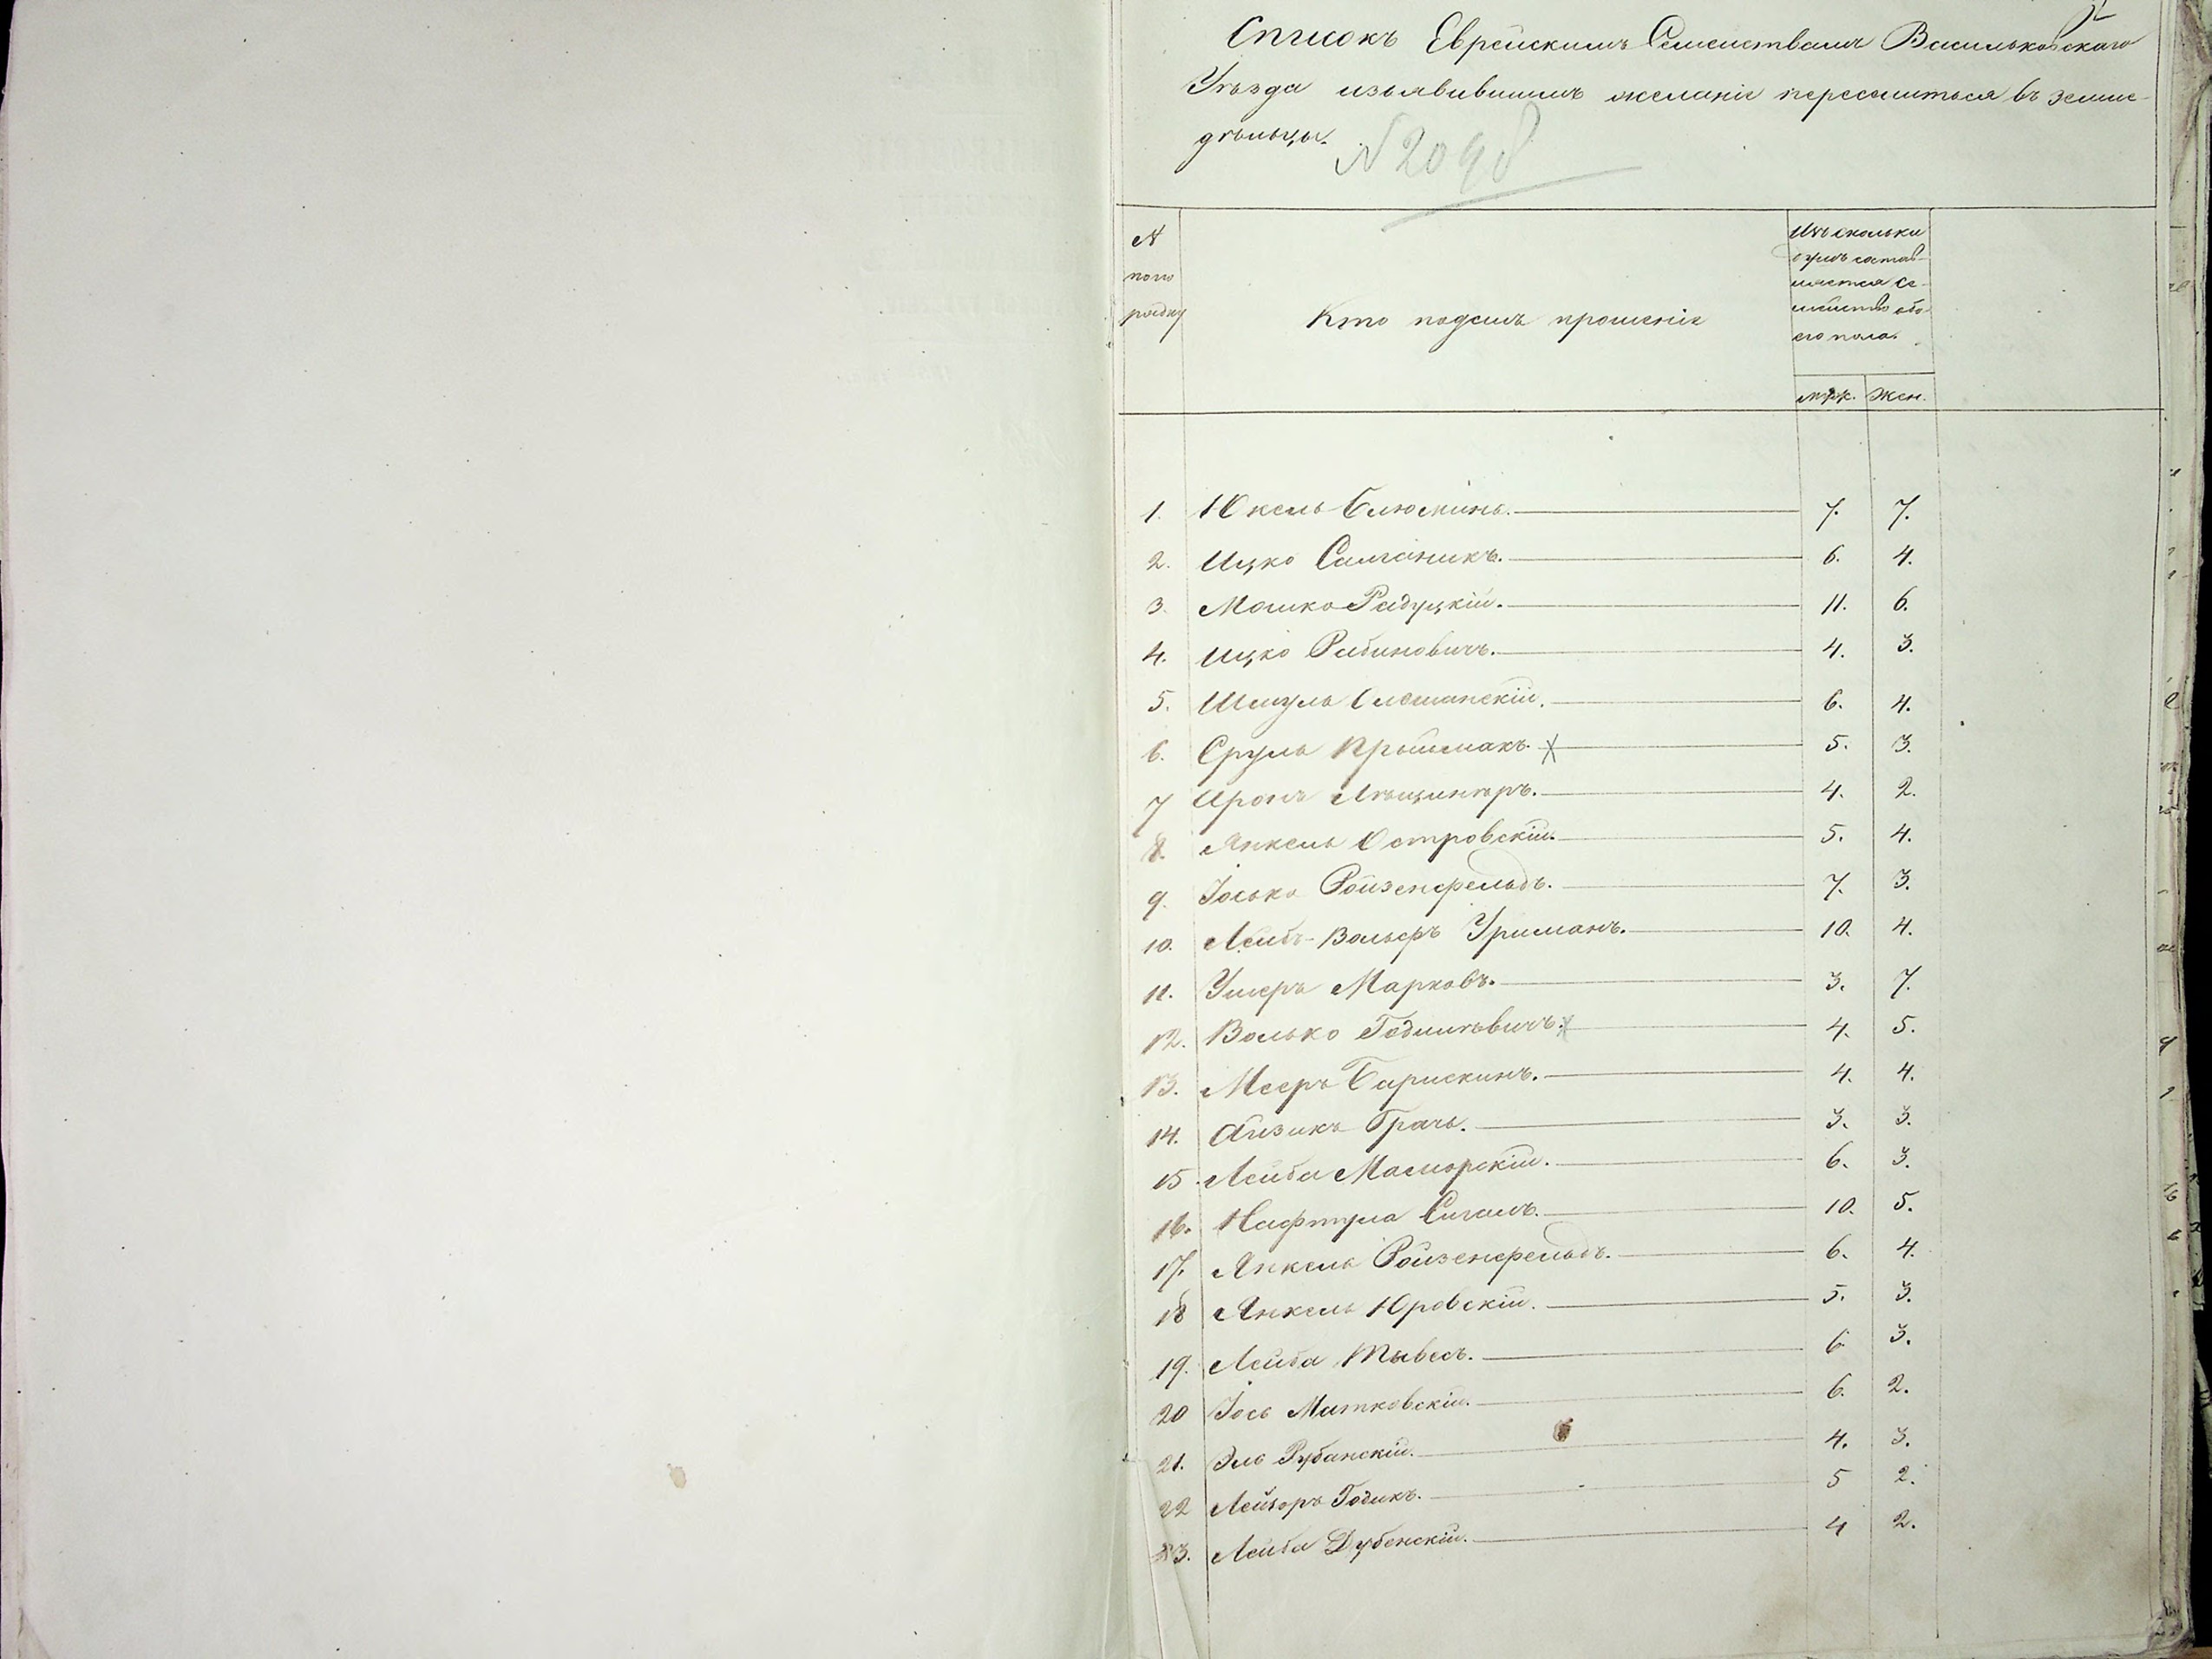 Списокъ Еврейскимъ Семействамъ Васильковскаго
Уѣзда изъявившимъ желаніе переселиться въ земле-
дѣльцы.
N 2098
N
по по
рядку
Кто подалъ прошеніе
Изъ сколькихъ
душъ состав-
ляется се-
мейство обо-
его пола.
муж. жен.
1. Юкель 7. 7.
2. Ицко Салганикъ. 6. 4.
3. Мошко Радуцкій. 11. 6.
4. Ицко Рабиновичъ. 4. 3.
5. Шмуль Ольшанскій. 6. 4.
6. Сруль 5. 3.
7 Аронъ 4. 2.
8. Янкель Островскій. 5. 4.
9. Іосько Ройзенфельдъ. 7. 3.
10. Лейбъ-Вольфъ Уриманъ. 10. 4.
11. Ушеръ Марковъ. 3. 7.
12. Волько 4. 5.
13. Мееръ Барискинъ. 4. 4.
14. Айзикъ Грачь. 3. 3.
15. Лейба 6. 3.
16. Нафтула Сигалъ. 10. 5.
17. Янкель Ройзенфельдъ. 6. 4.
18 Янкель Юровскій. 5. 3.
19. Лейба Тывесъ. 6 3.
20 Іось Митковскій. 6. 2.
21. Эль Рубанскій. 4. 3.
22 Лейзоръ Годикъ. 5 2.
23. Лейба Дубенскій. 4 2.